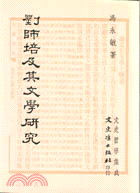 馮永敏著
劉師培及其文學研究
文史哲學集成
文史哲出版社印行